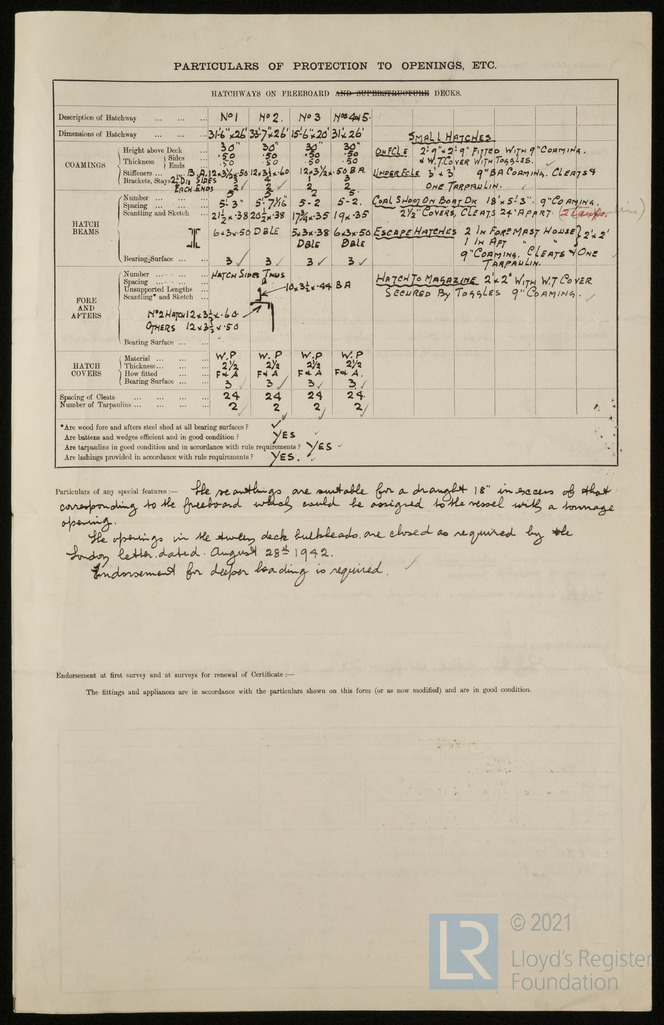 PARTICULARS OF PROTECTION TO OPENINGS, ETC.
HATCHWAYS ON FREEBOARD AND SUPERSTRUCTURE DECKS.
Description of Hatchway ... ... ... No 1 No 2. No 3 Nos 4 & 5.
Dimensions of Hatchway ... ... ... 31'-6" x 26' 33'-7" x 26' 15'-6" x 20' 31' x 26' SMALL HATCHES
COAMINGS
Height above Deck ... ... 30" 30" 30" 30" ON FCLE 2'-9" x 2'-9" FITTED WITH 9" COAMING.
Thickness Sides ... ... .50 .50 .50 .50 & W.T COVER WITH TOGGLES.
Ends ... ... .50 .50 .50 .50
Stiffeners ... B.A. 12 x 3½ x .50 12 x 3½ x .60 12 x 3½ x .50 B A UNDER FCLE 3' x 3' 9" B A COAMING. CLEATS &
Brackets, Stays 2" DIA SIDES 3 4 1 3 ONE TARPAULIN.
EACH ENDS 2 2 2 2
HATCH BEAMS
Number ... ... ... 5 5 2 5. COAL SHOOT ON BOAT DK 18" x 5'-3". 9" COAMING.
Spacing ... ... ... 5'-3" 5'-7/16 5-2 5-2. 2½" COVERS, CLEATS 24" APART. 2 tarps.
Scantling and Sketch ... 21½ x .38 20½ x .38 17¾ x .35 19 x .35
6 x 3 x 50 DBLE 5 x 3 x .38 DBLE 6 x 3 x 50 DBLE ESCAPE HATCHES 2 IN FORE MAST HOUSE 2' x 2'
1 IN AFT " "
9" COAMING. CLEATS & ONE
TARPAULIN.
Bearing Surface ... ... 3 3 3 3
FORE AND AFTERS
Number ... ... ... HATCH SIDES THUS HATCH TO MAGAZINE 2' x 2' WITH W.T COVER
Spacing ... ... ...
Unsupported Lengths 10 x 3½ x .44 B A SECURED BY TOGGLES 9" COAMING.
Scantling* and Sketch ...
No 2 HATCH 12 x 3½ x .60
OTHERS 12 x 3½ x .50
Bearing Surface ... ...
HATCH COVERS
Material ... ... ... W.P W.P W.P W.P
Thickness ... ... ... 2½ 2½ 2½ 2½
How fitted ... ... F & A F & A F & A F & A.
Bearing Surface ... ... 3 3 3 3
Spacing of Cleats ... ... ... 24 24 24 24
Number of Tarpaulins ... ... ... 2 2 2 2
*Are wood fore and afters steel shod at all bearing surfaces?
Are battens and wedges efficient and in good condition? YES
Are tarpaulins in good condition and in accordance with rule requirements? YES
Are lashings provided in accordance with rule requirements? YES.
Particulars of any special features :— The scantlings are suitable for a draught 18" in excess of that
corresponding to the freeboard which could be assigned to the vessel with a tonnage
opening.
The openings in the tween deck bulkheads are closed as required by the
London letter dated August 28th 1942.
Endorsement for deeper loading is required.
Endorsement at first survey and at surveys for renewal of Certificate :—
The fittings and appliances are in accordance with the particulars shown on this form (or as now modified) and are in good condition.
LR
© 2021
Lloyd's Register
Foundation